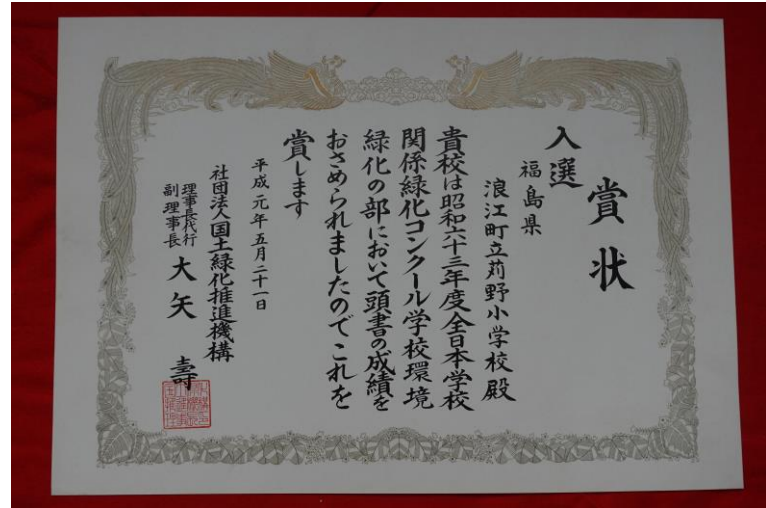 賞状
入選
福島県
浪江町立苅野小学校殿
貴校は昭和六十三年度全日本学校
関係緑化コンクール学校環境
緑化の部において頭書の成績を
おさめられましたのでこれを
賞します
平成元年五月二十一日
社団法人国土緑化推進機構
理事長代行
副理事長
大矢 壽